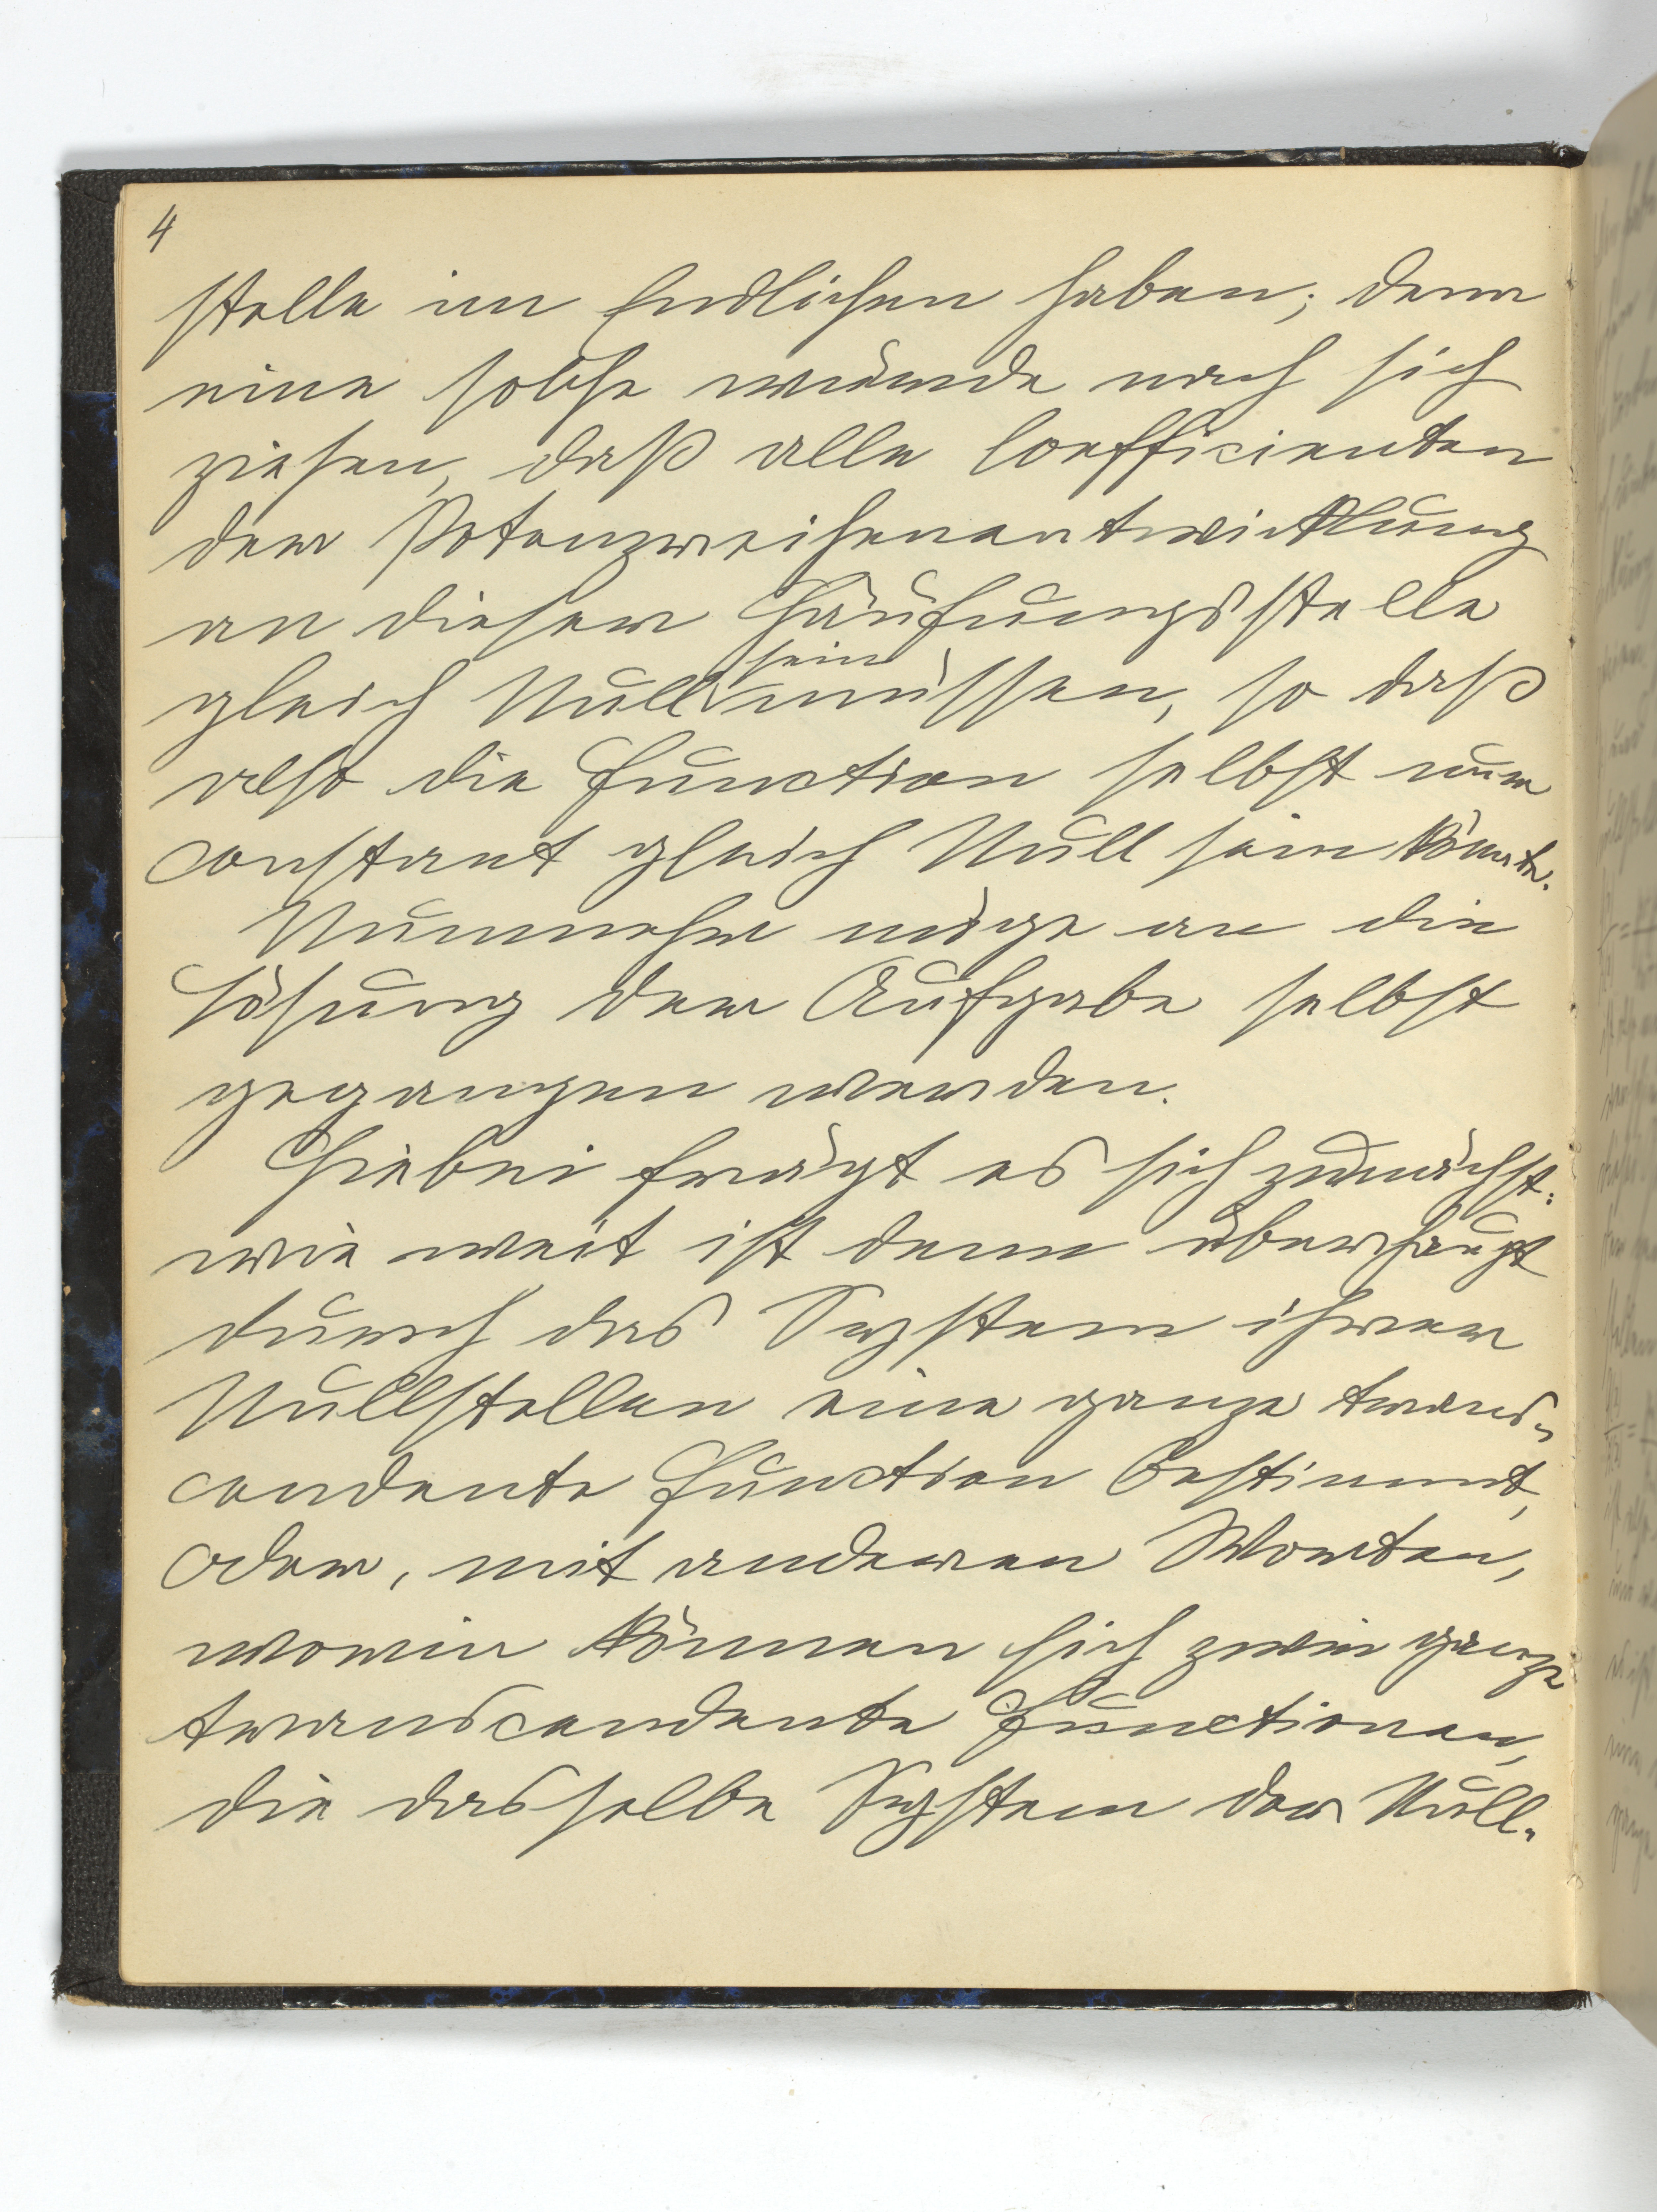 4
stelle im Endlichen haben; denn
eine solche würde nach sich
ziehen, daß alle Coefficienten
der Potenzreihenentwicklung
an dieser Häufungsstelle
gleich Null sein müssen, so daß
also die Function selbst nur
constant gleich Null sein könnte.
Nunmehr möge an die
Lösung der Aufgabe selbst
gegangen werden.
Hiebei frägt es sich zunächst:
wie weit ist denn überhaupt
durch das System ihrer
Nullstellen eine ganze trans-
cendente Function bestimmt,
oder, mit anderen Worten,
worin können sich zwei ganze
transcendente Functionen,
die dasselbe System der Null-